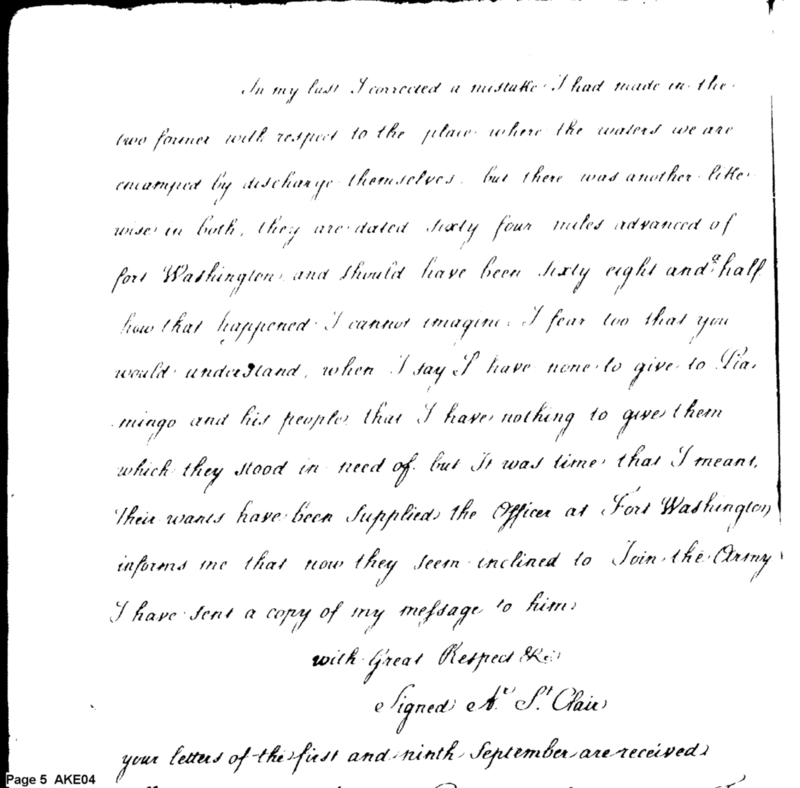 In my last I corrected a mistake I had made in the
two former with respect to the place where the waters we are
encamped by discharge themselves. but there was another like
wise in both, they are dated sixty four miles advanced of
fort Washington and should have been sixty eight and a half
how that happened I cannot imagine. I fear too that you
would understand, when I say I have none to give to Pia
mingo and his people, that I have nothing to give them
which they stood in need of. but It was time that I meant.
Their wants have been Supplied, the Officer at Fort Washington
informs me that now they seem inclined to Join the Army
I have sent a copy of my message to him
with Great Respect &c
Signed Ar. St. Clair
your letters of the first and ninth September are received
Page 5 AKE04